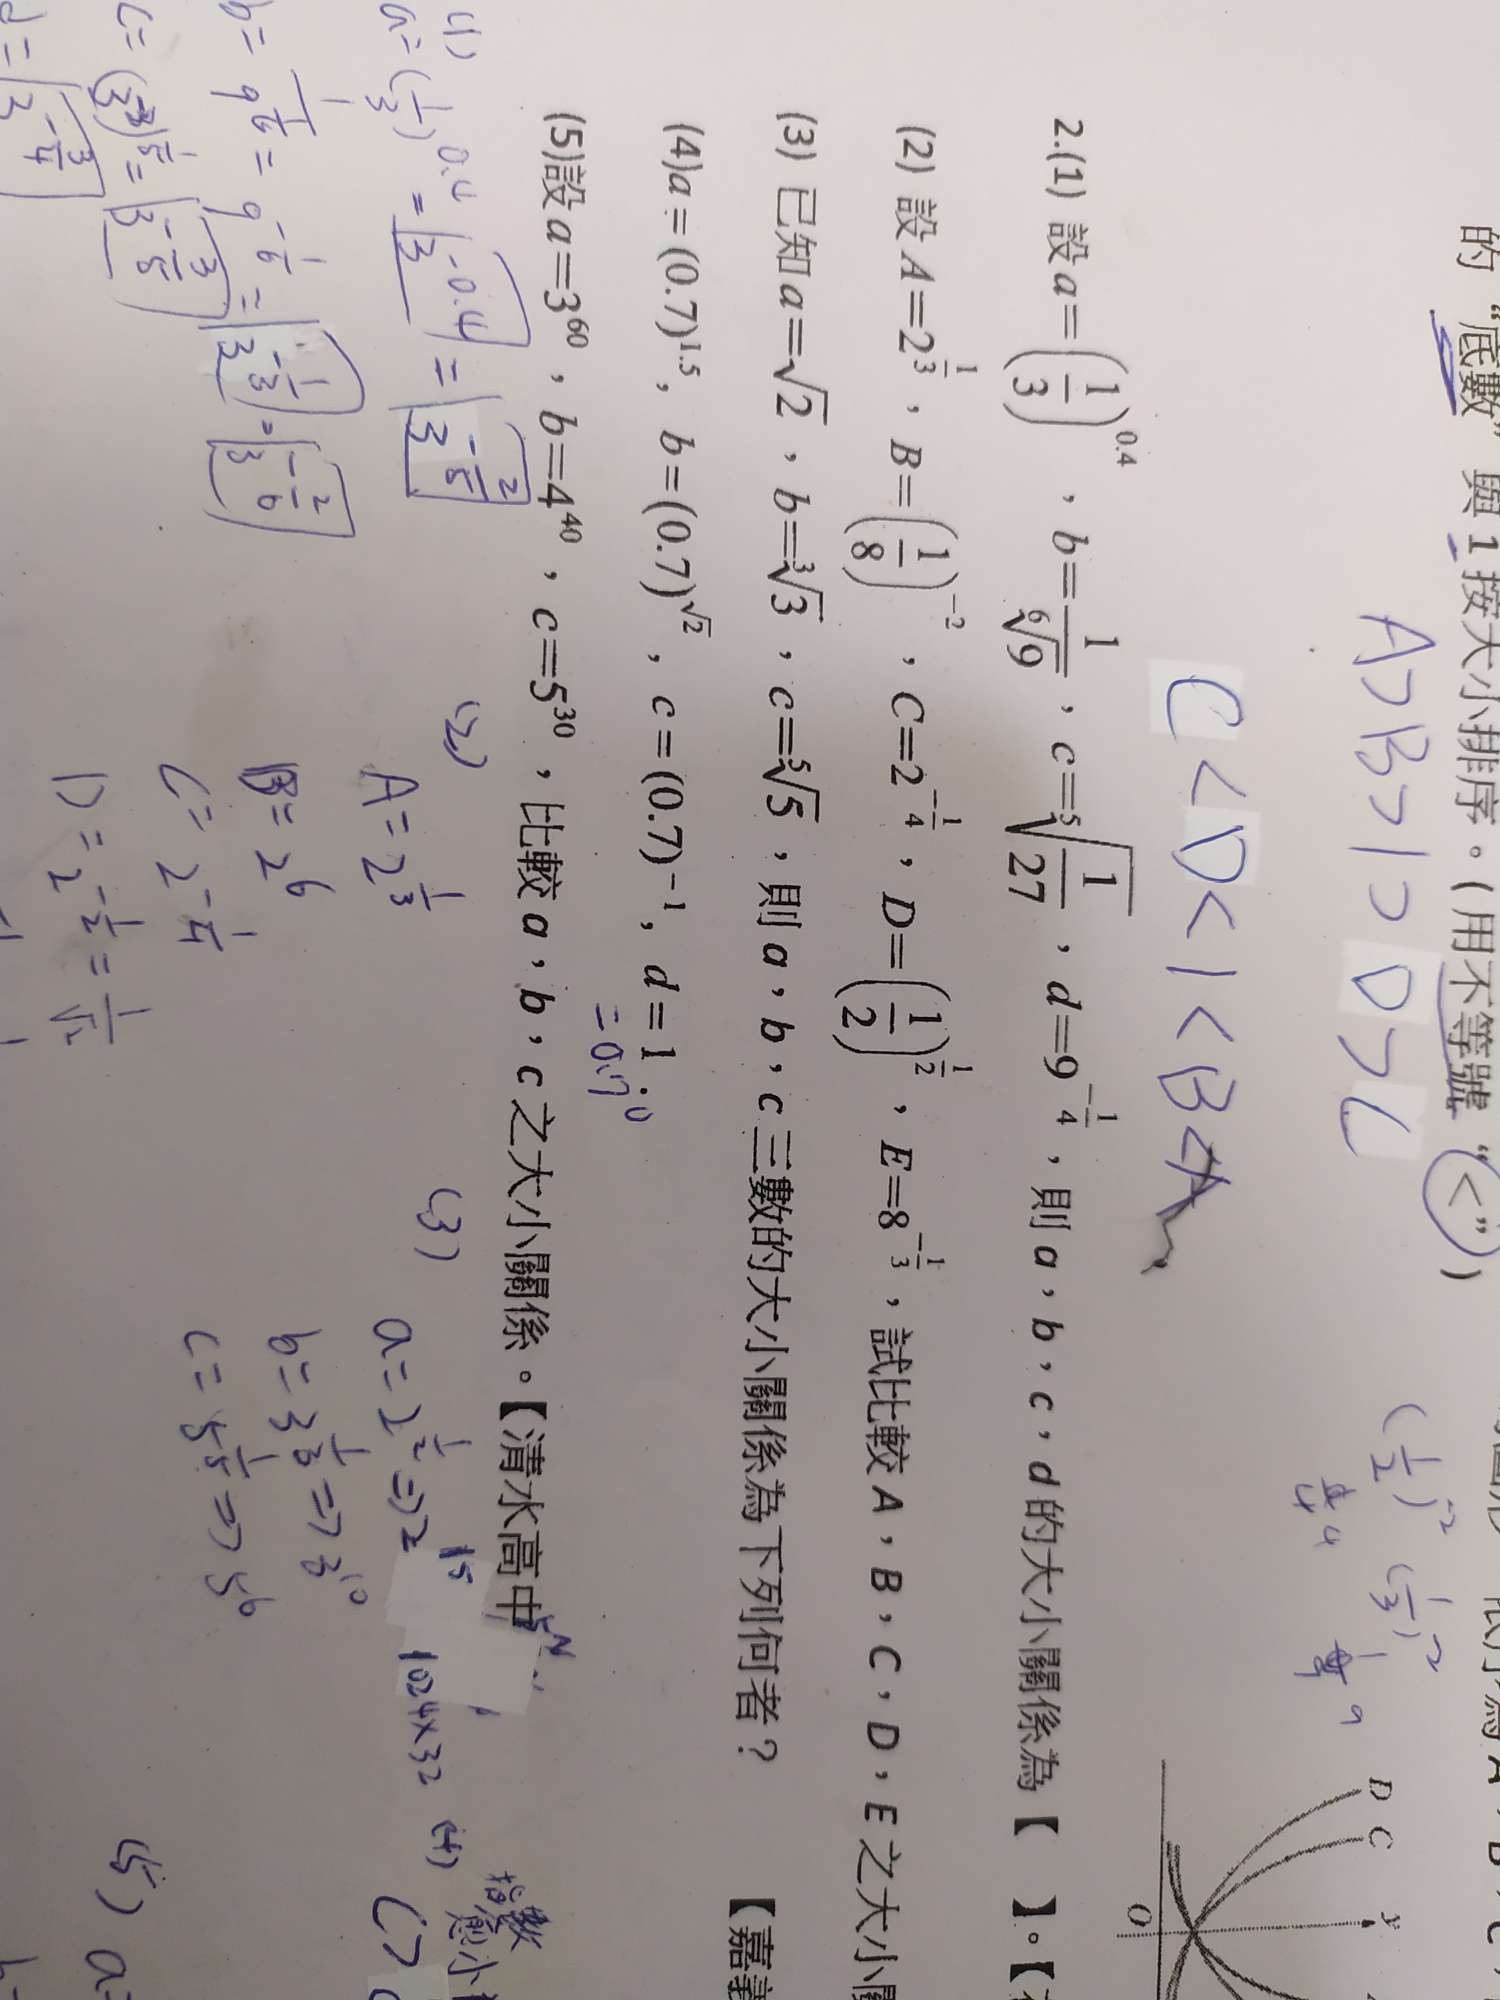 的“底數”與1按大小排序。(用不等號“<”)
A>B>1>D>C
C<D<1<B<A
(1/2)^-2 (1/3)^-2
4 9
D C y
O
2.(1) 設a=(1/3)^0.4,b=1/⁶√9,c=⁵√(1/27),d=9^(-1/4),則a,b,c,d的大小關係為【 】。【
(2) 設A=2^(1/3),B=(1/8)^-2,C=2^(-1/4),D=(1/2)^(1/2),E=8^(-1/3),試比較A,B,C,D,E之大小
(3) 已知a=√2,b=³√3,c=⁵√5,則a,b,c三數的大小關係為下列何者? 【嘉義
(4)a=(0.7)^1.5,b=(0.7)^√2,c=(0.7)^-1,d=1
=0.7^0
(5)設a=3^60,b=4^40,c=5^30,比較a,b,c之大小關係。【清水高中
(1)
a=(1/3)^0.4=3^-0.4=3^(-2/5)
b=1/9^(1/6)=9^(-1/6)=3^(-1/3)=3^(-2/6)
c=(3^-3)^(1/5)=3^(-3/5)
d=3^(-3/4)
(2)
A=2^(1/3)
B=2^6
C=2^(-1/4)
D=2^(-1/2)=1/√2
(3)
a=2^(1/2)⇒2^15
b=3^(1/3)⇒3^10
c=5^(1/5)⇒5^6
1024×32
(4) 指數愈小
C>
(5) a=
b=